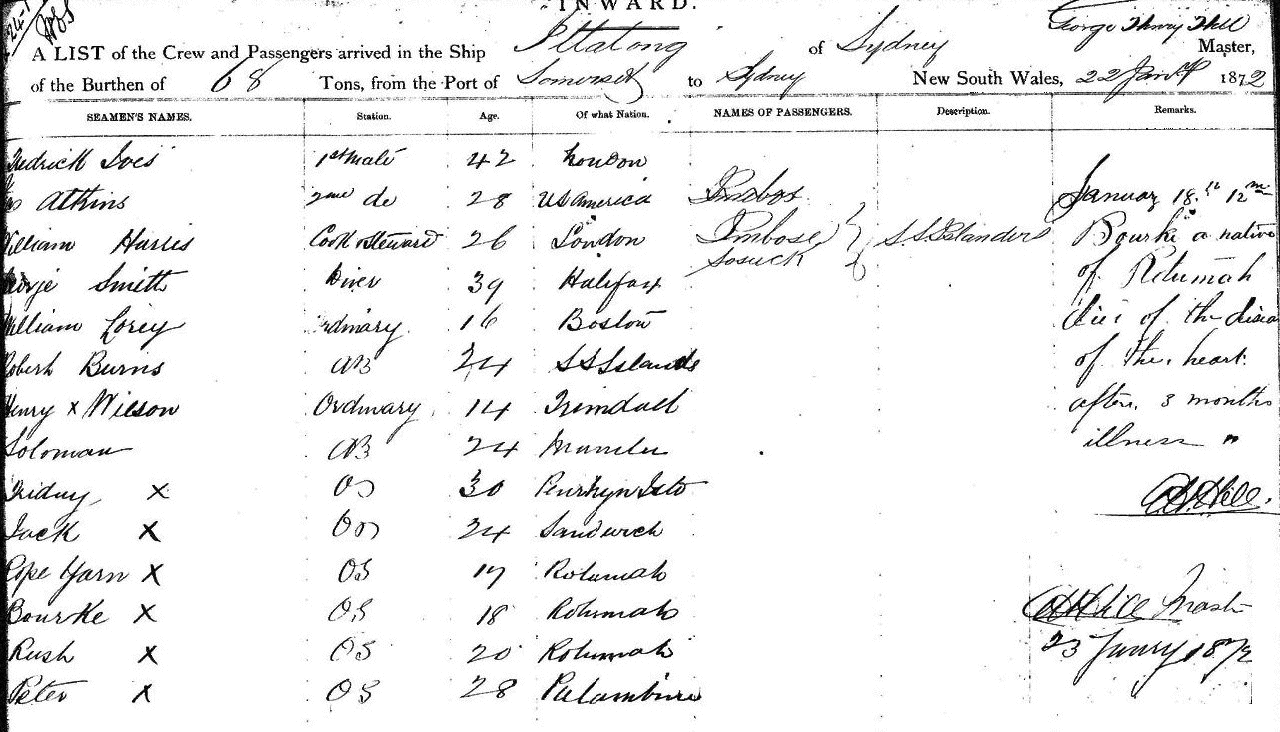 INWARD.
A LIST of the Crew and Passengers arrived in the Ship Ittatong of Sydney George Henry Hill Master,
of the Burthen of 68 Tons, from the Port of Somerset to Sydney New South Wales, 22 Jany 1872
SEAMEN'S NAMES. Station. Age. Of what Nation. NAMES OF PASSENGERS. Description. Remarks.
Fredrick Ives 1st Mate 42 London
Atkins 2nd do 28 US America January 18th 12 m
William Harris Cook & Steward 26 London Jimbose S S Islanders Bourke a native
George Smith Diver 39 Halifax Sosuck of Rotumah
William Corey Ordinary 16 Boston died of the disea
Robert Burns AB 24 S S Islands of the heart
Henry x Wilson Ordinary 14 after 3 months
Soloman AB 24 illness "
Friday x OS 30 Penrhyn Isld GH Hill.
Jack x OS 24 Sandwich
Rope Yarn x OS 17 Rotumah
Bourke x OS 18 Rotumah GH Hill Master
Rush x OS 20 Rotumah 23 Janury 1872
Peter x OS 28